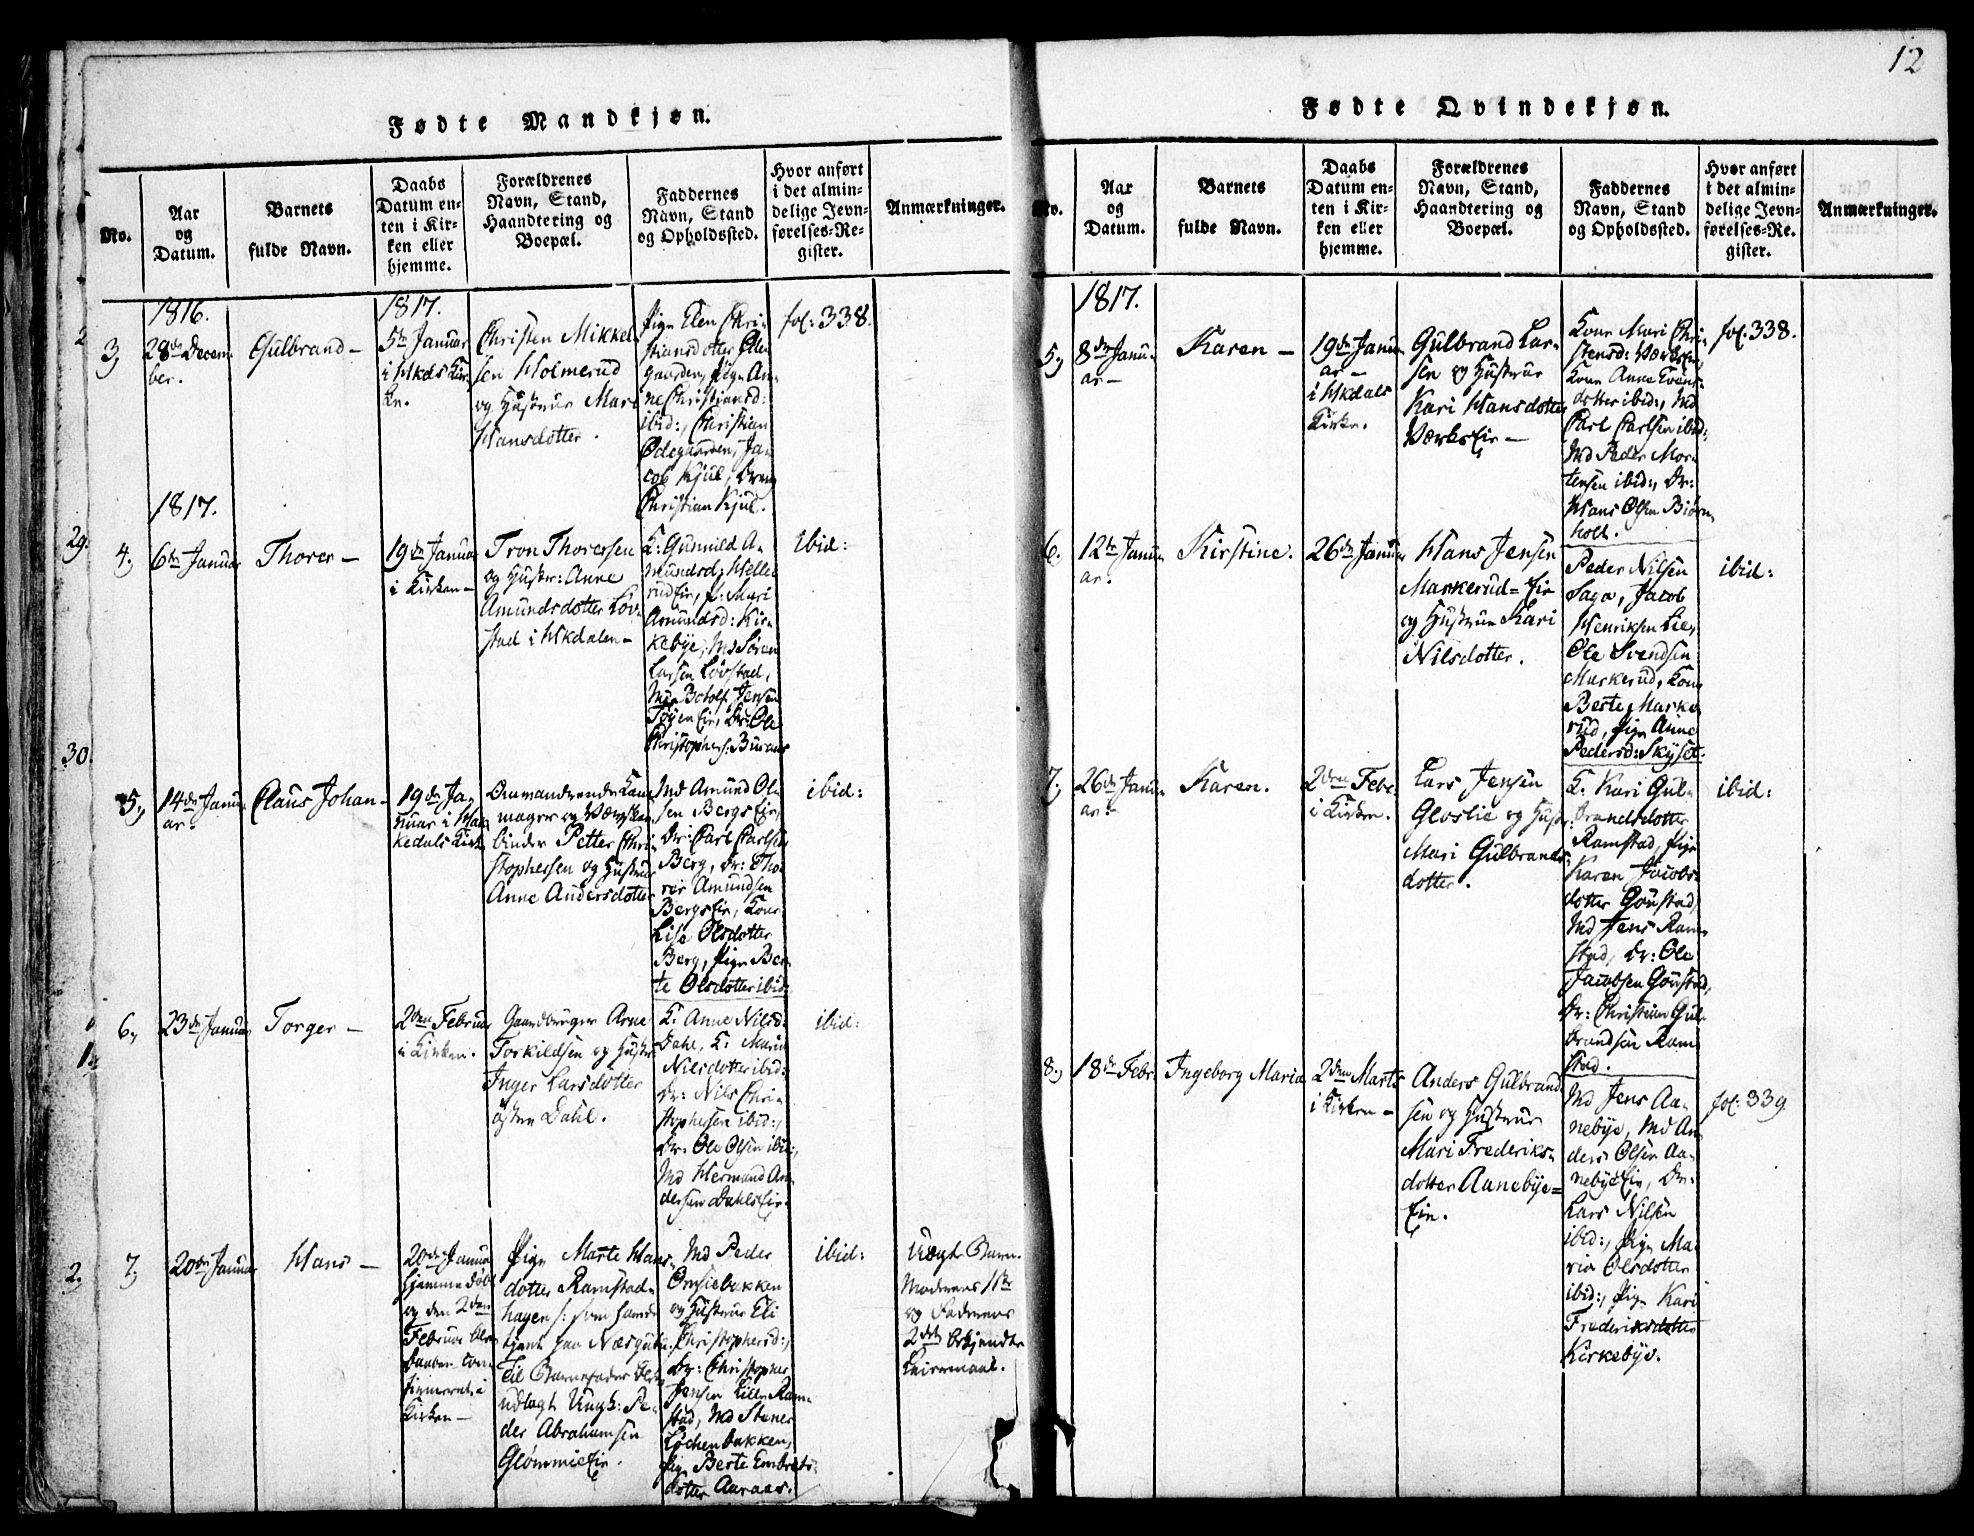 12
Fødte Mandkjøn.
No.
Aar
og
Datum.
Barnets
fulde Navn.
Daabs
Datum en-
ten i Kir-
ken eller
hjemme.
Forældrenes
Navn, Stand,
Haandtering og
Boepæl.
Faddernes
Navn, Stand
og Opholdssted.
Hvor anført
i det almin-
delige Jevn-
førelses-Re-
gister.
Anmærkninger.
1816.
3,
28de Decem-
ber.
Gulbrand –
1817.
5te Januar
i Kir-
ke.
Christen Mikkel-
sen Holmerud
og Hustrue Mari
Hansdotter.
Pige Elen Chri-
stiansdotter
Pige An-
ne Christiansd:
ibid:, Christian
Ødegaarden, Ja-
cob Kjul, Dreng
Christian Kjul.
fol: 338.
1817.
4,
6te Januar
Thorer –
19de Januar
i Kirken –
Tron Thorersen
og Hustr: Anne
Amundsdotter Løv-
stad i Hkdalen –
K: Gunnild A-
mundsd: Helle-
rudeie, p: Mari
Amundsd: Kir-
kebye, Md Søren
Larsen Løvstad,
Botolf Jensen
Dr: Ole
Christophers: Buraas
Ibid:
5,
14de Janu-
ar.
Claus Johan –
19de Ja-
nuar i Hak-
kedals Kirk
Omvandrende
mager og
binder Petter Chri-
stophersen og Hustrue
Anne Andersdotter
Md Amund Ol-
sen Bergs Eie,
Dr: Carl Carlsen
Berg, Dr: Tho-
rer Amundsen
Bergs Eie, Kone
Lise Olsdotter
Berg, Pige Ber-
te Olsdotter ibid:
ibid:
6,
23de Januar
Torger –
2den Februar
i Kirken.
Gaardbruger Arne
Torkildsen og Hustr:
Inger Larsdotter
østre Dahl.
K: Anne Nilsd:
Dahl, K: Maria
Nilsdotter ibid:
Dr: Nils Chri-
stophersen ibid:,
Dr: Ole Olsen ibid:,
Md Hermand An-
dersen Dahls Eie.
ibid:
7,
20de Januar
Hans –
20de Januar
hjemme døbt
og den 2den
Februar
Daaben con-
firmeret i
Kirken –
Pige Marte Hans-
dotter Ramstad-
hagen
tjent paa
Til Barnefader
udlagt Ungk: Pe-
der Abrahamsen
Glømmieeie.
Md Peder
Onsiebakken
og Hustrue Eli
Christophersd:,
Dr: Christopher
Jensen Lille Ram-
stad, Md Stener
Løchenbakken,
Pige Berte Embrets-
dotter Aaraas.
ibid:
Uægte Barn.
Moderens 1ste
og Faderens
2det bekjendte
Leiermaal.
Fødte Qvindekjøn.
No.
Aar
og
Datum.
Barnets
fulde Navn.
Daabs
Datum en-
ten i Kir-
ken eller
hjemme.
Forældrenes
Navn, Stand,
Haandtering og
Boepæl.
Faddernes
Navn, Stand
og Opholdssted.
Hvor anført
i det almin-
delige Jevn-
førelses-Re-
gister.
Anmærkninger.
1817.
5,
8de Janu-
ar –
Karen –
19de Janu-
ar –
i Hkdals
Kirke.
Gulbrand Lar-
sen og Hustrue
Kari Hansdotter
Værks Eie –
Kone Mari Chri-
stensd: Værkseie,
Kone Anne Evens-
dotter ibid:, Md
Carl Carlsen ibid:,
Md Peder Mor-
tensen ibid:, Dr:
Hans Olsen Biørn-
holt.
fol: 338.
6,
12te Janu-
ar.
Kirstine.
26de Januar
Hans Jensen
Markerud-Eie
og Hustrue Kari
Nilsdotter.
Peder Nilsen
Saga, Jacob
Henriksen Lie,
Ole Svendsen
Markerud, Kone
Berte Marke-
rud, Pige Anne
Pedersd: Skyset.
ibid:
7,
26de Janu-
ar.
Karen.
2den Febr.
i Kirken.
Lars Jensen
Gloslie og Hustr:
Mari Gulbrands-
dotter.
K. Kari Gul-
brandsdotter
Ramstad, Pige
Karen Jacobs-
dotter Gounstad,
Md Jens Ram-
stad, Dr: Ole
Jacobsen Gounstad,
Dr: Christian Gul-
brandsen Ram-
stad.
ibid:
8,
18de Febr.
Ingeborg Maria
2den Marts
i Kirken –
Anders Gulbrand-
sen og Hustrue
Mari Frederiks-
dotter Aanebye-
Eie.
Md Jens Aa-
nebye, Md An-
ders Olsen Aa-
nebye Eie, Dr:
Lars Nilsen
ibid:, Pige Ma-
ria Olsdotter
ibid:, Pige Kari
Frederiksdotter
Kirkebye.
fol: 339.